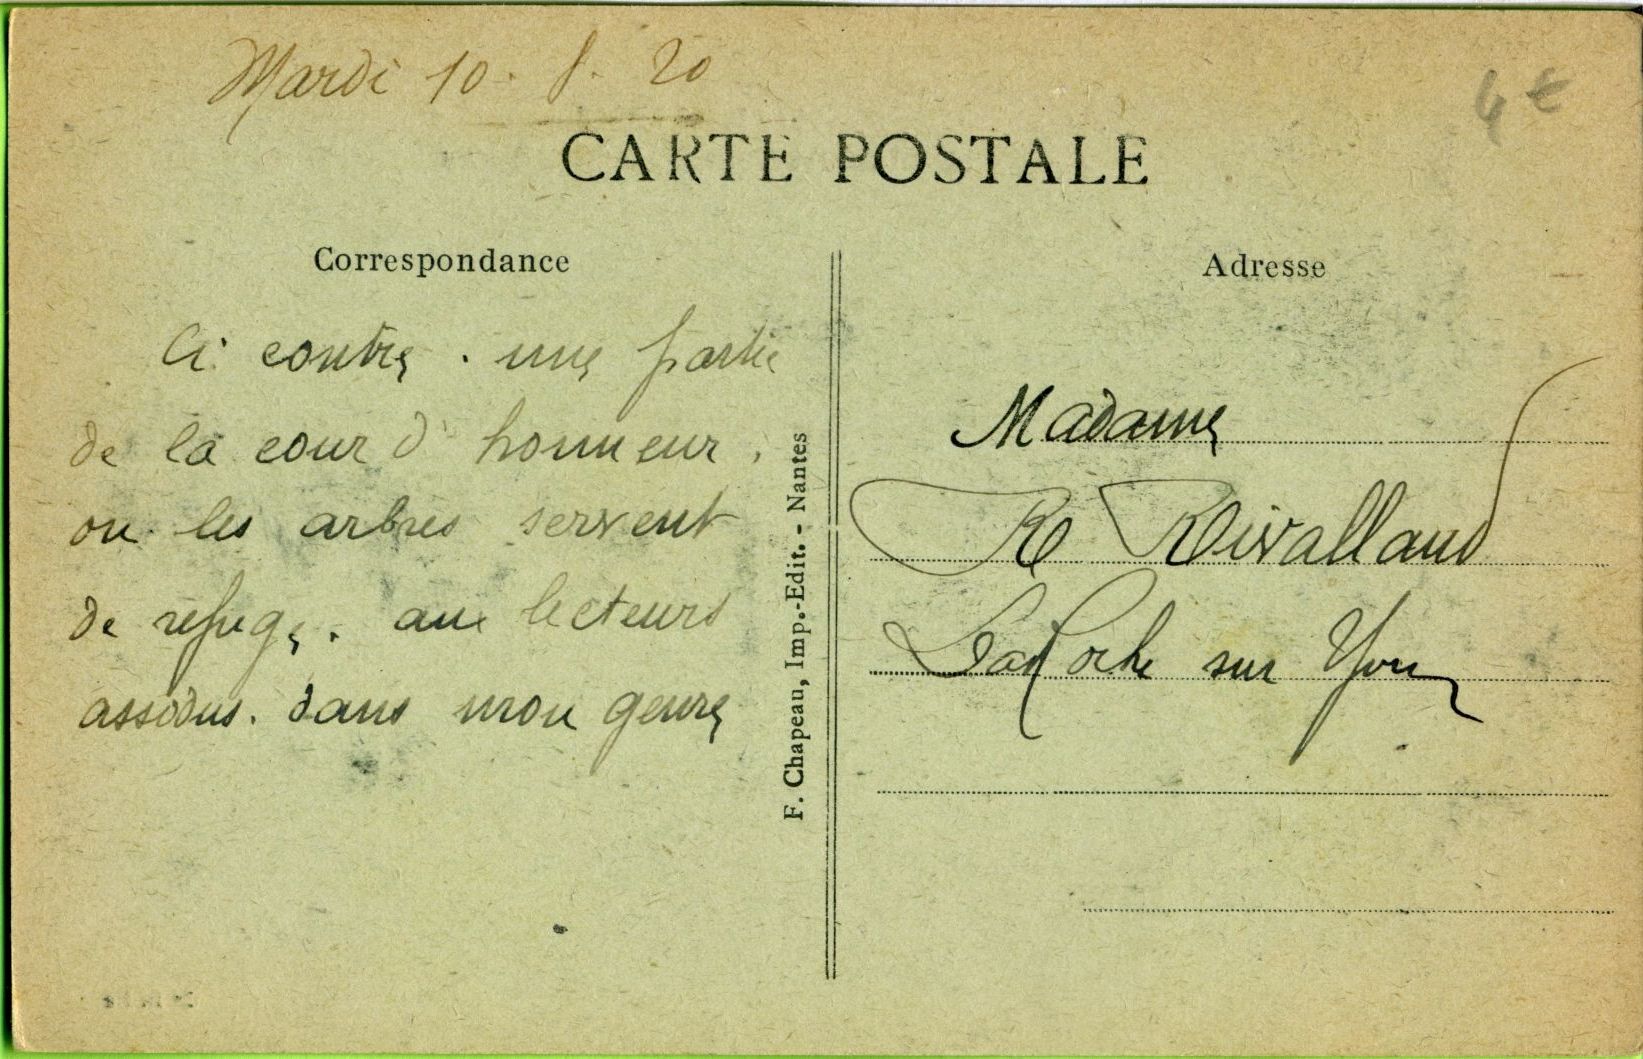 Mardi 10. 8. 20
4 €
CARTE POSTALE
Correspondance
Ci contre. une partie
de la cour d'honneur.
ou les arbres servent
de refuge. aux lecteurs
assidus. dans mon genre
F. Chapeau, Imp.-Edit. - Nantes
Adresse
Madame
R Rivalland
La Roche sur Yon